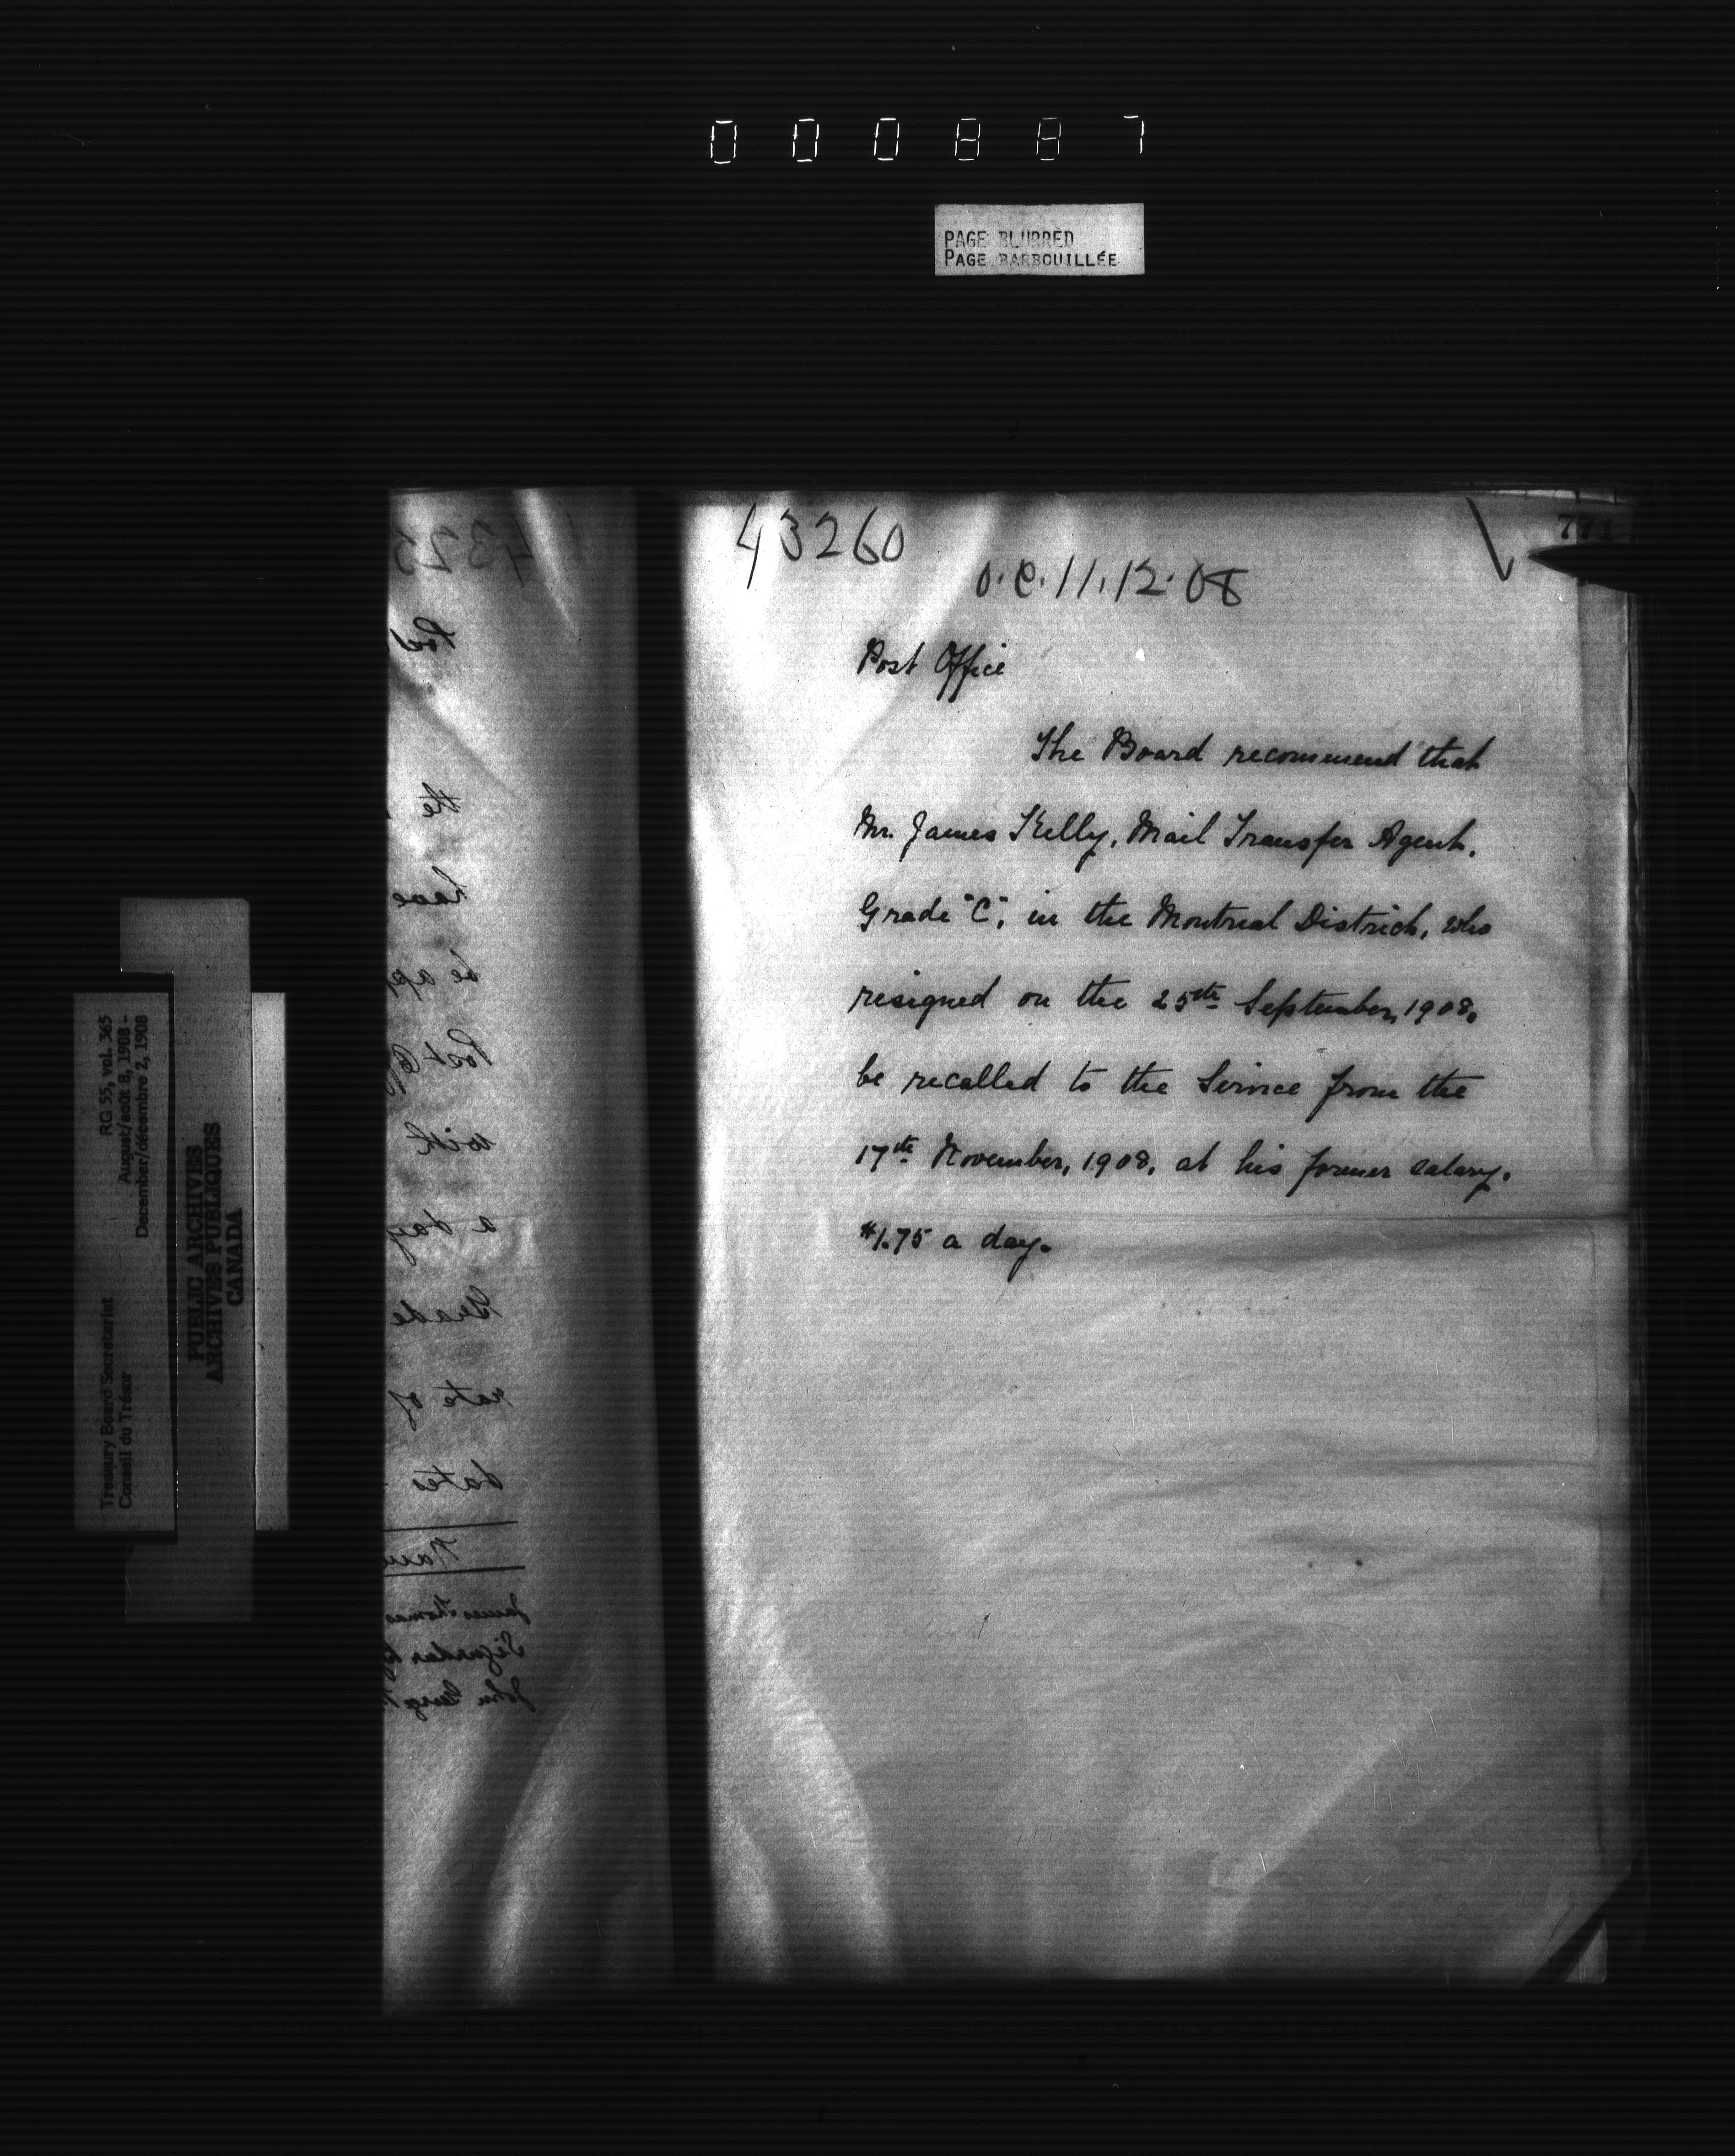 000887
PAGE BLURRED
PAGE BARBOUILLÉE
43260
771
O.C. 11.12.08
Post Office
The Board recommend that
Mr. James Kelly, Mail Transfer Agent,
Grade "C", in the Montreal District, who
resigned on the 25th September, 1908,
be recalled to the Service from the
17th November, 1908, at his former salary,
$1.75 a day.
4325
the
have
be ap
Post Of
with
a day
Grade
rate of
dates
James Thomas
John
Treasury Board Secretariat RG 55, vol. 365
Conseil du Trésor August/août 8, 1908 -
December/décembre 2, 1908
PUBLIC ARCHIVES
ARCHIVES PUBLIQUES
CANADA